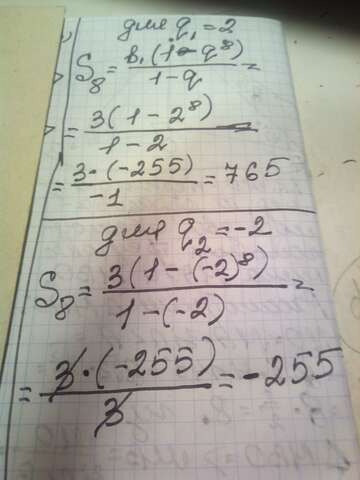 для q₁ = 2
S₈ = b₁(1-q⁸)/1-q =
= 3(1-2⁸)/1-2 =
= 3·(-255)/-1 = 765
для q₂ = -2
S₈ = 3(1-(-2)⁸)/1-(-2) =
= 3·(-255)/3 = -255